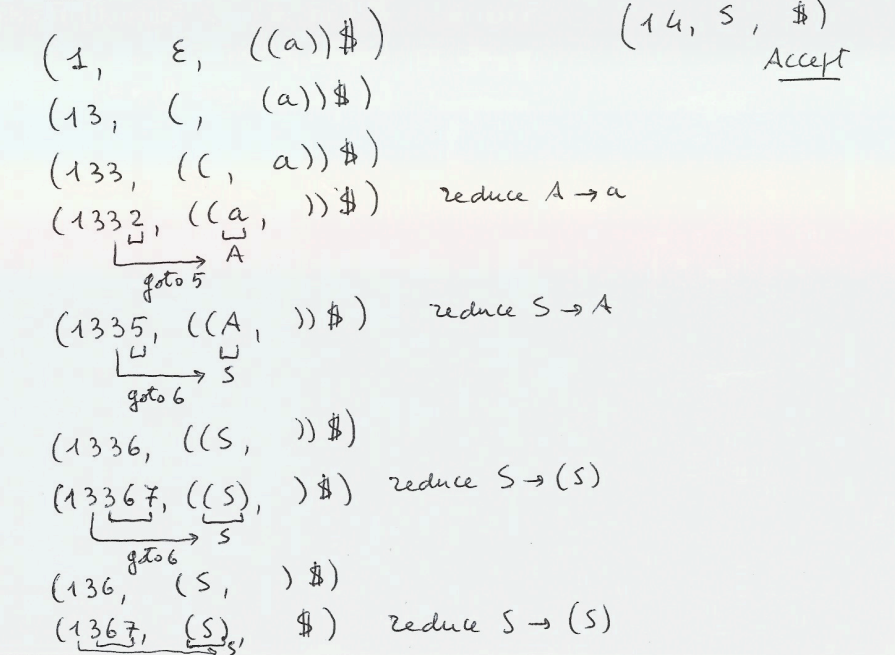 (1, ε, ((a))$)
(13, (, (a))$)
(133, ((, a))$)
(1332, ((a, ))$) reduce A → a
A
goto 5
(1335, ((A, ))$) reduce S → A
S
goto 6
(1336, ((S, ))$)
(13367, ((S), )$) reduce S → (S)
S
goto 6
(136, (S, )$)
(1367, (S), $) reduce S → (S)
S
(14, S, $)
Accept